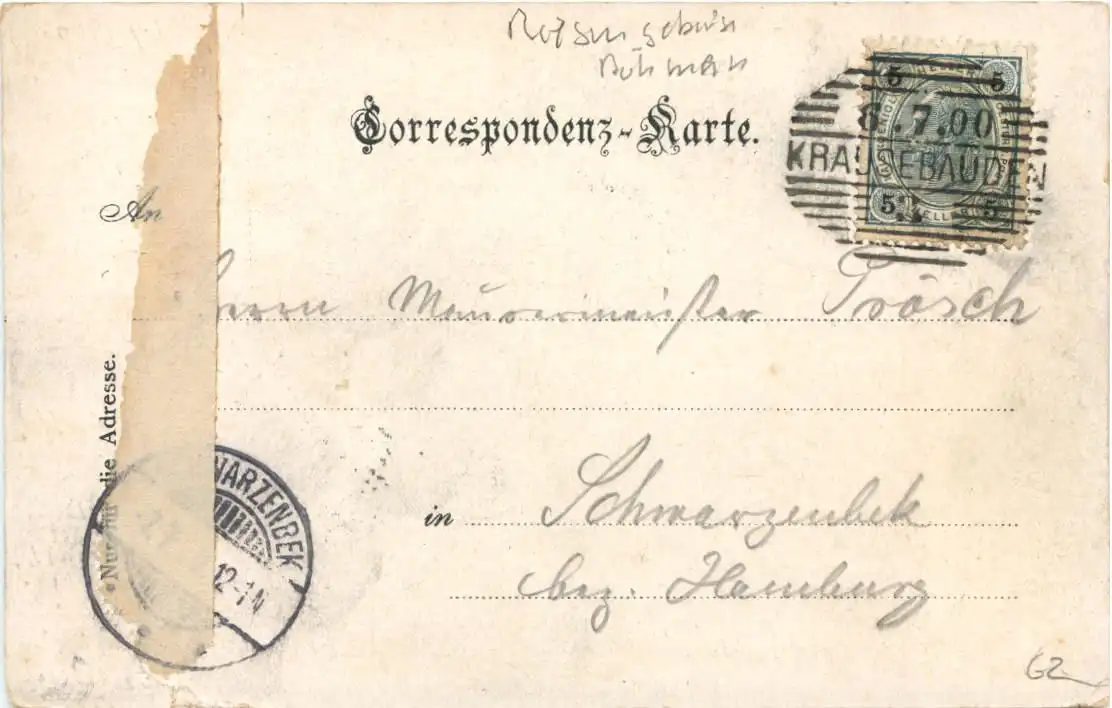 Correspondenz-Karte.
5 HELLER 5
6.7.00
KRAUSEBAUDEN
5 HELLER 5
An
Herrn Maurermeister Trösch
Nur für die Adresse.
in Schwarzenbek
bez. Hamburg
HARZENBEK
12-1N
62